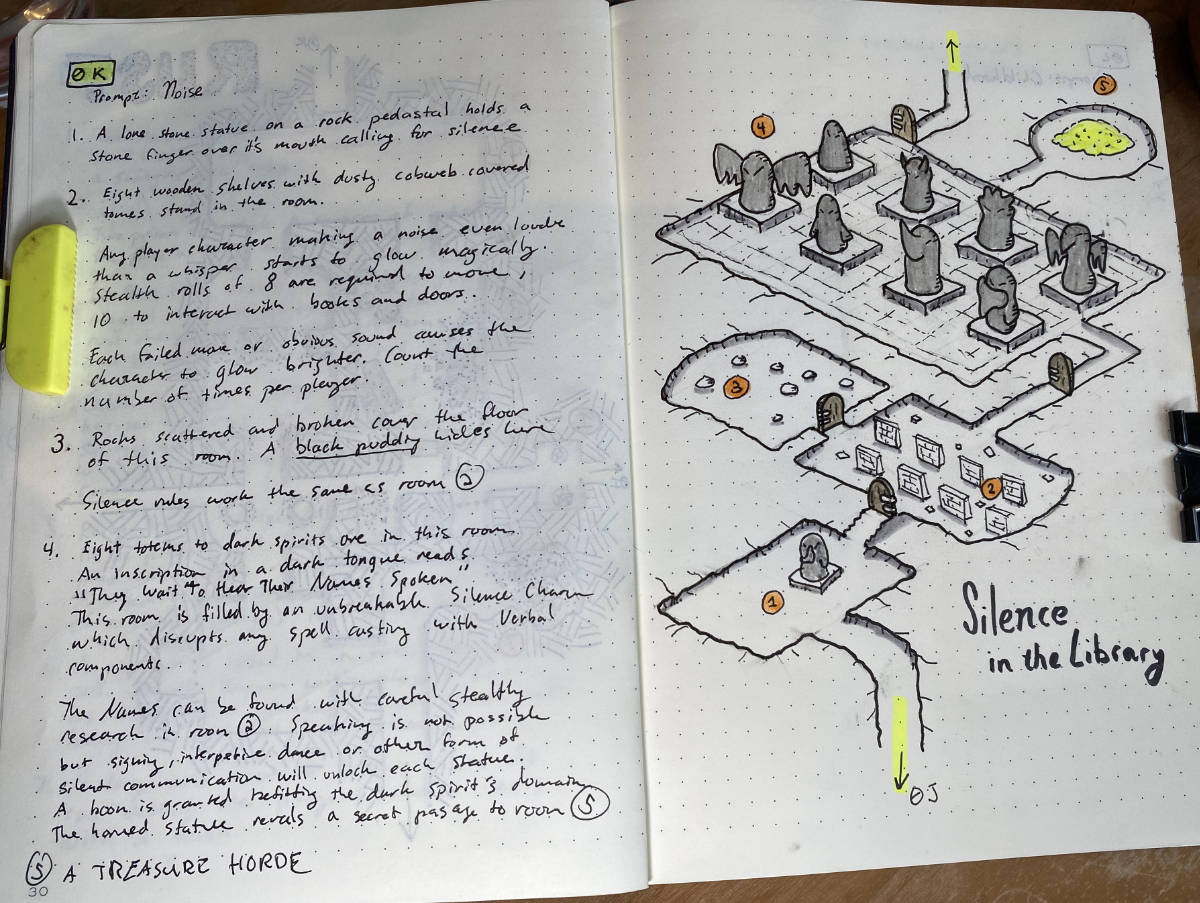 ØK
Prompt: Noise
1. A lone stone statue on a rock pedastal holds a
stone finger over it's mouth calling for silence
2. Eight wooden shelves with dusty cobweb covered
tomes stand in the room.
Any player character making a noise even louder
than a whisper starts to glow magically.
Stealth rolls of 8 are required to move,
10 to interact with books and doors.
Each failed move or obvious sound causes the
character to glow brighter. Count the
number of times per player.
3. Rocks scattered and broken cover the floor
of this room. A black pudding hides here
Silence rules work the same as room 2
4. Eight totems to dark spirits are in this room.
An inscription in a dark tongue reads
"They Wait to Hear Their Names Spoken"
This room is filled by an unbreakable Silence Charm
which disrupts any spell casting with Verbal
components.
The Names can be found with careful stealthy
research in room 2. Speaking is not possible
but signing, interpetive dance or other form of
silent communication will unlock each statue.
A boon is granted befitting the dark spirit's domain
The horned statue reveals a secret passage to room 5
5 A TREASURE HORDE
30
5
4
3
2
1
Silence
in the Library
ØJ